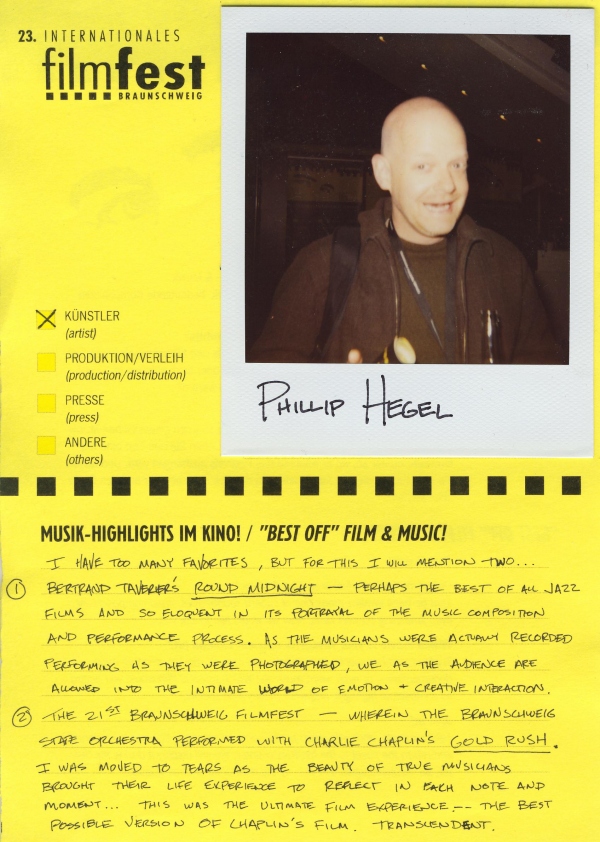 23. INTERNATIONALES
filmfest
BRAUNSCHWEIG
KÜNSTLER
(artist)
PRODUKTION/VERLEIH
(production/distribution)
PRESSE
(press)
ANDERE
(others)
PHILLIP HEGEL
MUSIK-HIGHLIGHTS IM KINO! / "BEST OFF" FILM & MUSIC!
I HAVE TOO MANY FAVORITES, BUT FOR THIS I WILL MENTION TWO...
1 BERTRAND TAVERIER'S ROUND MIDNIGHT — PERHAPS THE BEST OF ALL JAZZ
FILMS AND SO ELOQUENT IN ITS PORTRAYAL OF THE MUSIC COMPOSITION
AND PERFORMANCE PROCESS. AS THE MUSICIANS WERE ACTUALLY RECORDED
PERFORMING AS THEY WERE PHOTOGRAPHED, WE AS THE AUDIENCE ARE
ALLOWED INTO THE INTIMATE WORLD OF EMOTION + CREATIVE INTERACTION.
2 THE 21ST BRAUNSCHWEIG FILMFEST — WHEREIN THE BRAUNSCHWEIG
STATE ORCHESTRA PERFORMED WITH CHARLIE CHAPLIN'S GOLD RUSH.
I WAS MOVED TO TEARS AS THE BEAUTY OF TRUE MUSICIANS
BROUGHT THEIR LIFE EXPERIENCE TO REFLECT IN EACH NOTE AND
MOMENT... THIS WAS THE ULTIMATE FILM EXPERIENCE -- THE BEST
POSSIBLE VERSION OF CHAPLIN'S FILM. TRANSCENDENT.